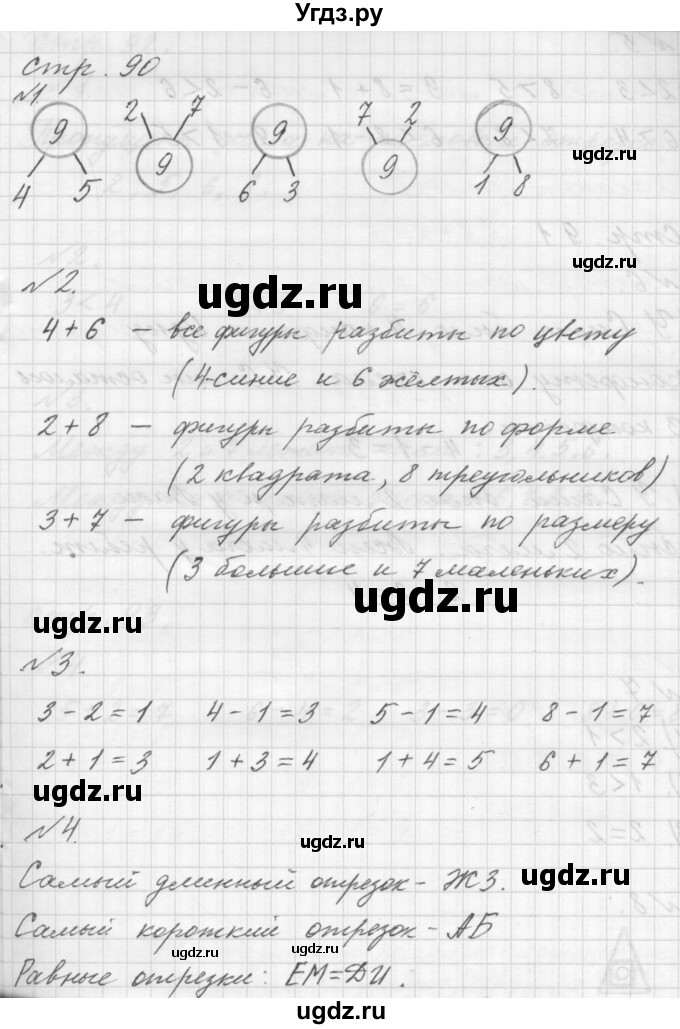 Угдз.ру
стр. 90
№1.
9 2 7 9 7 2 9
4 5 9 6 3 9 1 8
ugdz.ru
ugdz.ru
№2.
ugdz.ru
4 + 6 – все фигуры разбиты по цвету
(4-синие и 6 жёлтых).
2 + 8 – фигуры разбиты по форме
(2 квадрата, 8 треугольников)
3 + 7 – фигуры разбиты по размеру
(3 большие и 7 маленьких).
ugdz.ru
ugdz.ru
№3.
3 – 2 = 1 4 – 1 = 3 5 – 1 = 4 8 – 1 = 7
2 + 1 = 3 1 + 3 = 4 1 + 4 = 5 6 + 1 = 7
ugdz.ru
№4.
ugdz.ru
ugdz.ru
Самый длинный отрезок – ЖЗ.
Самый короткий отрезок – АБ
ugdz.ru ugdz.ru
Равные отрезки: ЕМ=ДИ.
ugdz.ru